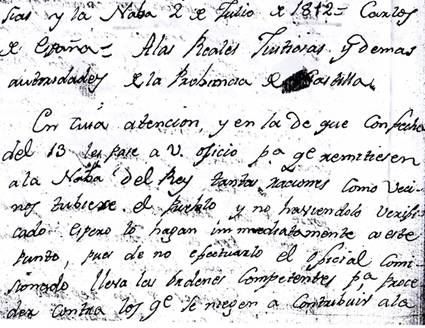 cias y la Naba 2 de Julio de 1812 = Carlos
de España = A las Reales Justicias y demas
autoridades de la Probincia de Castilla.
En cuia atencion, y en la de que con fecha
del 13 les pase a V. oficio pa qe remitiesen
a la Naba del Rey tantas raciones como veci-
nos tubiese el Pueblo y no haviendolo verifi-
cado espero lo hagan immediatamente a este
punto, pues de no efectuarlo el oficial comi
sionado lleva las ordenes competentes pa proce
der contra los qe se niegen a contribuir a la